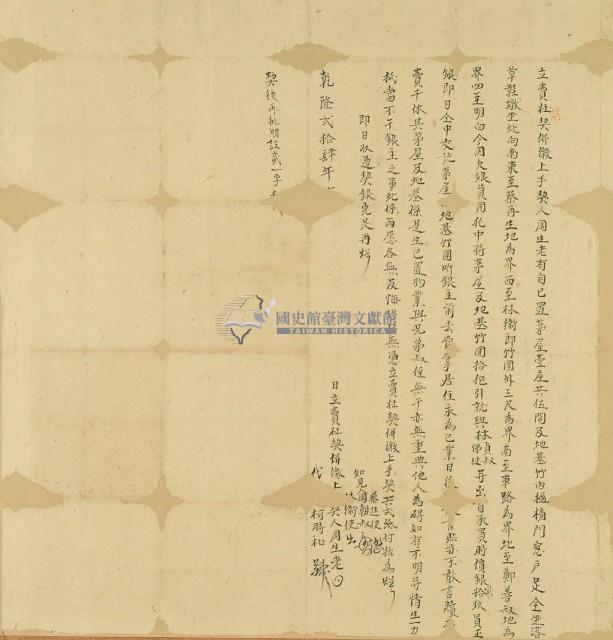 立賣杜契併繳上手契人周生老有自己置茅屋壹座共伍間及地基竹內楹桷門窓戶足全坐落
草鞋墩坐北向南東至蔡再生地為界西至林衞即竹圍外三尺為界南至車路為界北至鄭善叔地為
界四至明白今因欠銀費用托中將茅屋及地基竹圍拾把引就與林貞叔 等出 自承買時價銀拾玖員正
銀即日仝中交訖茅屋 地基竹圍听銀主前去管掌居住永為己業日後 言 亦不敢言贖
賣千休其茅屋及地基係是生己置物業與兄弟叔侄無干亦無重典他人為碍如有不明等情生一力
抵當不干銀主之事此係兩愿各無反悔 無憑立賣杜契併繳上手契共弍紙付執為炤
即日收過契銀完足再炤
乾隆弍拾肆年
日立賣杜契併繳上 契人周生老
契後再批明註 一字
知見
代 柯時和 號
國史館臺灣文獻館
TAIWAN HISTORICA